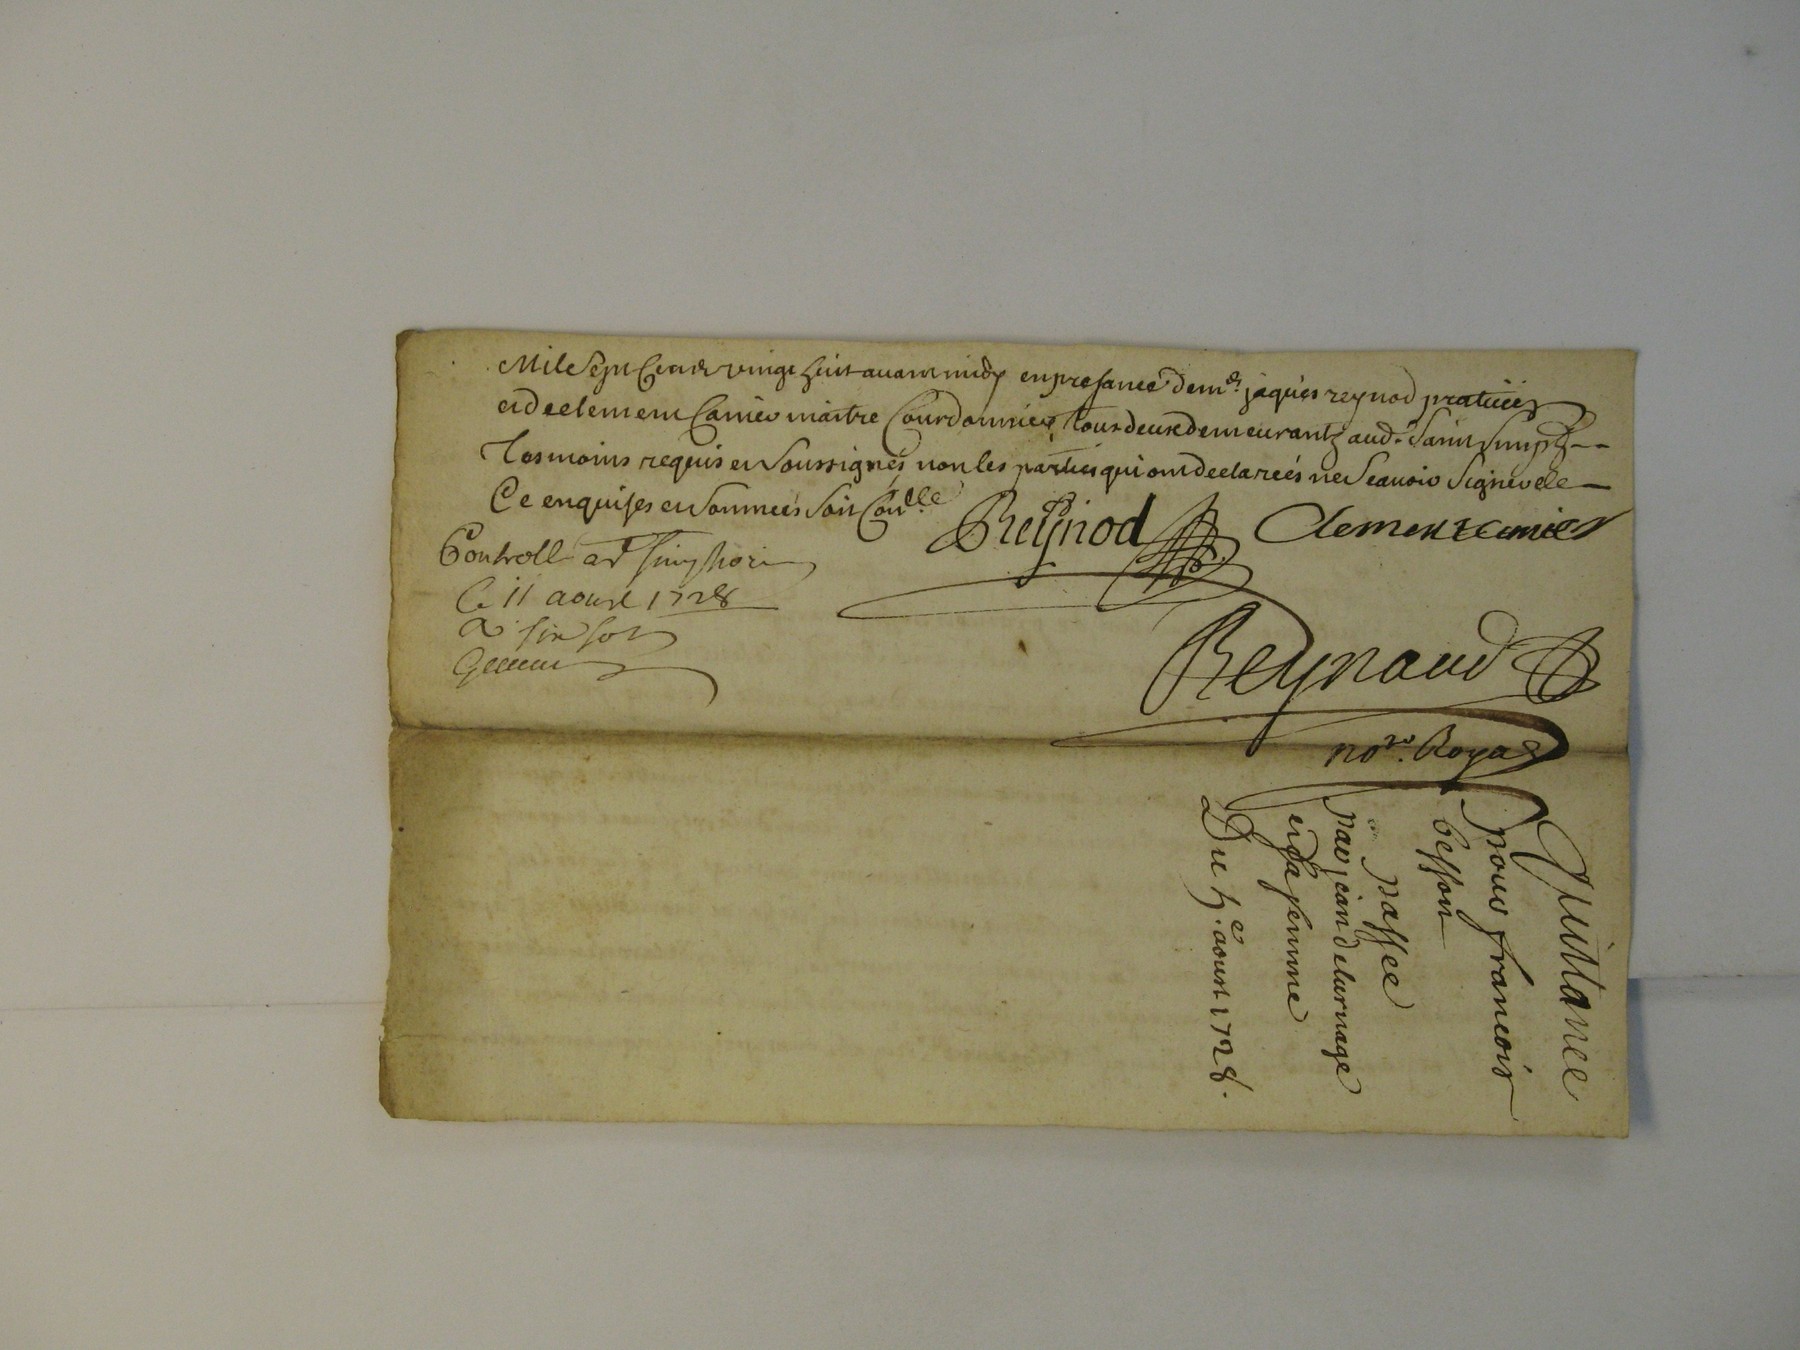 Mil Sept Cents vingt huit avant midy en presance de me. jaques reynod praticien
et de clement Camier maitre Courdonnier, tous deux demeurants aud. Saint Simph--
Tesmoins requis et Soussignés non les parties qui ont declareés ne Scavoir Signer de
Ce enquises et Sommeés Soit Conlle
Reynod Clement Camier
Controllé a St Simphorien
le 11 aoust 1728
R six sols
Reynaud
nore. Royal
Quittance
pour francois
besson
passee
par jean delurnage
et sa femme
Du 5e. aoust 1728.